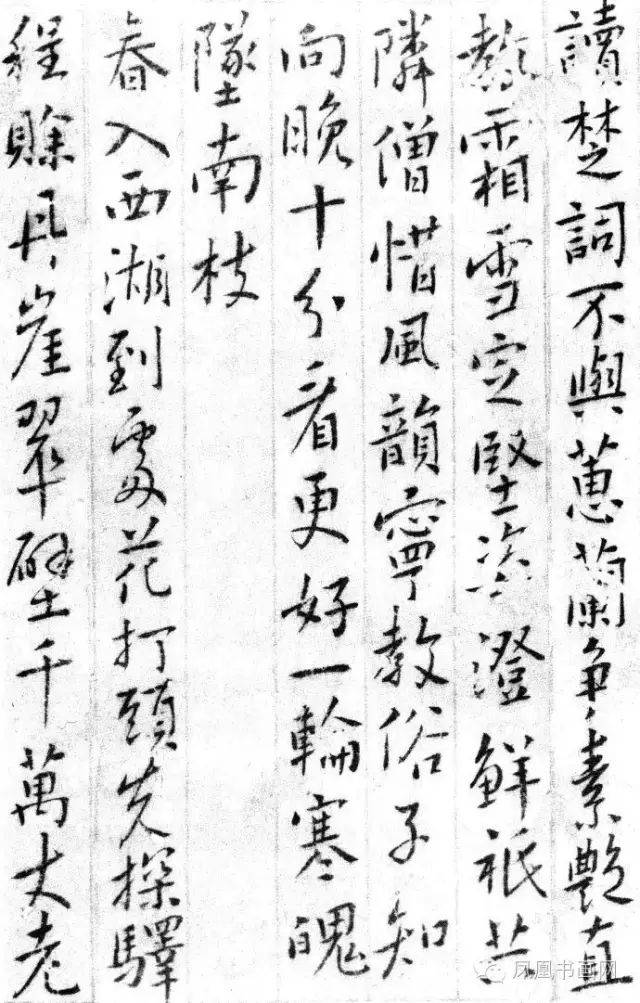 讀楚詞不與蕙蘭爭素艷直
教霜雪定堅姿澄鮮祇共
隣僧惜風韻寧教俗子知
向晚十分看更好一輪寒魄
墜南枝
春入西湖到處花打頭先探驛
程賒丹崖翠壁千萬丈老
凤凰书画网